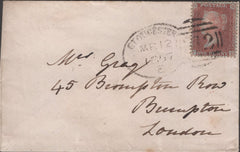 GLOUCESTER
MR 12
1857
Mrs Gray
45 Brompton Row
Brompton
London